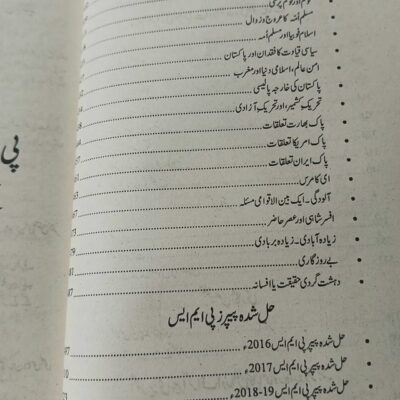 مسلم اُمّہ کا عروج و زوال
اسلام فوبیا اور مسلم اُمہ
سیاسی قیادت کا فقدان اور پاکستان
امن عالم، اسلامی دنیا اور مغرب
پاکستان کی خارجہ پالیسی
تحریکِ کشمیر، اور تحریکِ آزادی
پاک بھارت تعلقات
پاک امریکا تعلقات
پاک ایران تعلقات
ای کامرس
آلودگی۔ ایک بین الاقوامی مسئلہ
افسر شاہی اور عصر حاضر
زیادہ آبادی۔ زیادہ بربادی
بے روزگاری
دہشت گردی حقیقت یا افسانہ
حل شدہ پیپرز پی ایم ایس
حل شدہ پیپر پی ایم ایس 2016ء
حل شدہ پیپر پی ایم ایس 2017ء
حل شدہ پیپر پی ایم ایس 19-2018ء